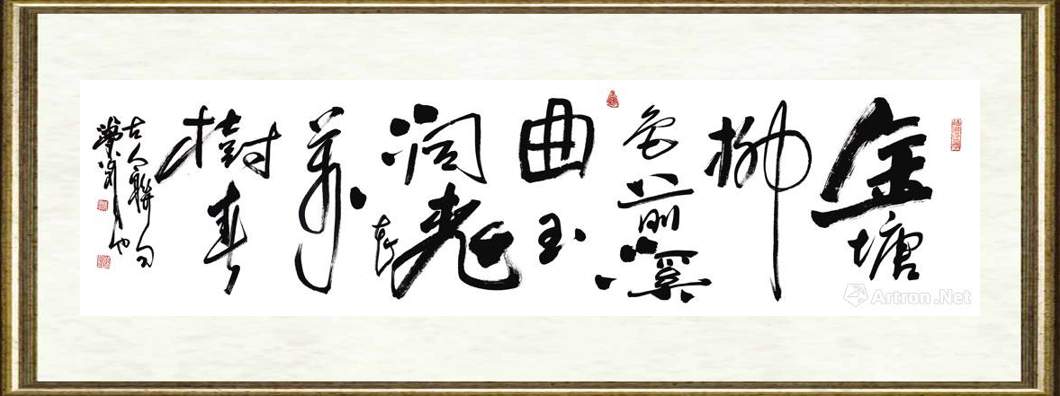 金塘
柳
色前溪
曲玉
洞桃花
萬
樹春
古人聯句